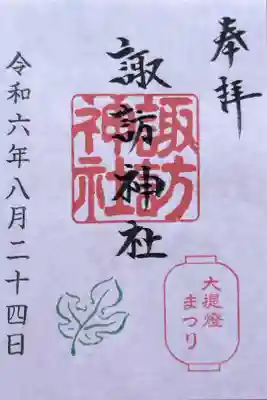 奉拝
諏訪神社
諏訪
神社
大提燈
まつり
令和六年八月二十四日